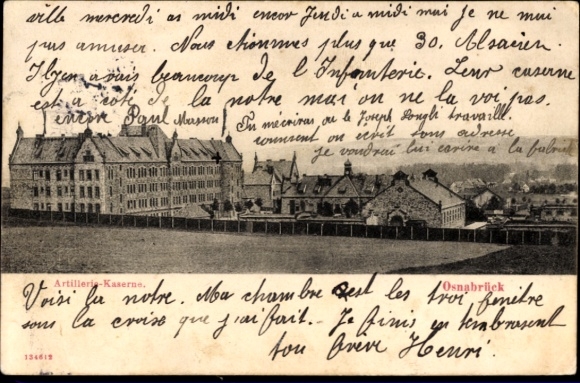 ville mercredi as midi encor Jendi a midi mai je ne mai
pas amuser. Nous étionnes plus que 30. Alsacien.
Il y en avais beaucoup de l'Infanterie. Leur caserne
est a coté de la notre mai on ne la voi pas.
encore Paul Masson
Tu mecriras ou le Joseph travaille.
comment on ecrit sons adresse
je voudrai lui ecrire a la
Artillerie-Kaserne.
Osnabrück
Voisi la notre. Ma chambre est les troi fenêtre
sous la croix que j'ai fait. - Je finis en tembrasent
ton Brève Henri.
134612